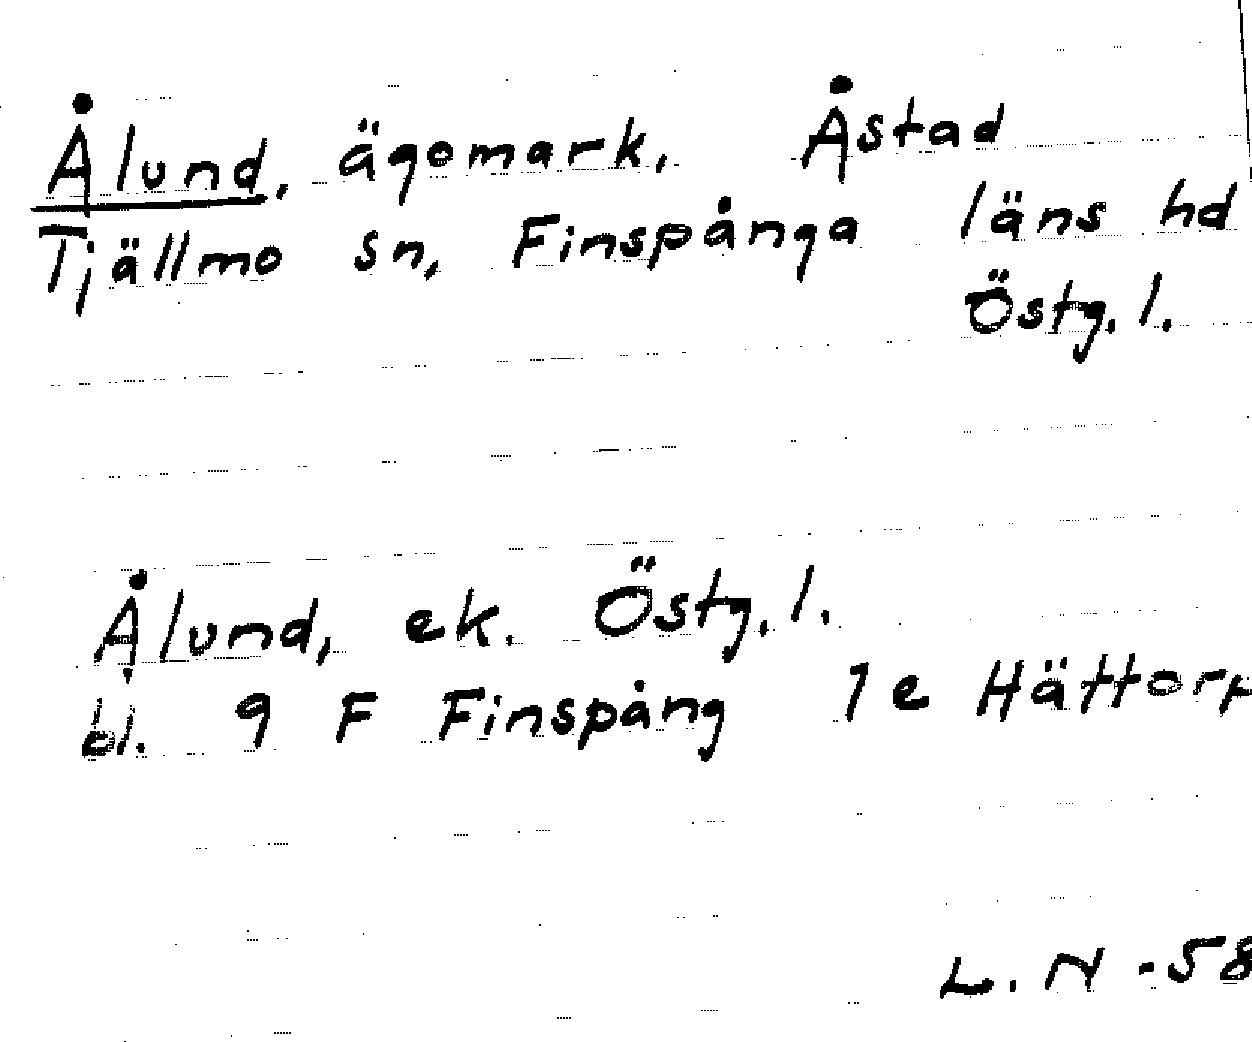 Ålund, ägomark, Åstad
Tjällmo sn, Finspånga läns hd
Östg. l.
Ålund, ek. Östg. l.
bl. 9 F Finspång 1 e Hättorp
L. N -58